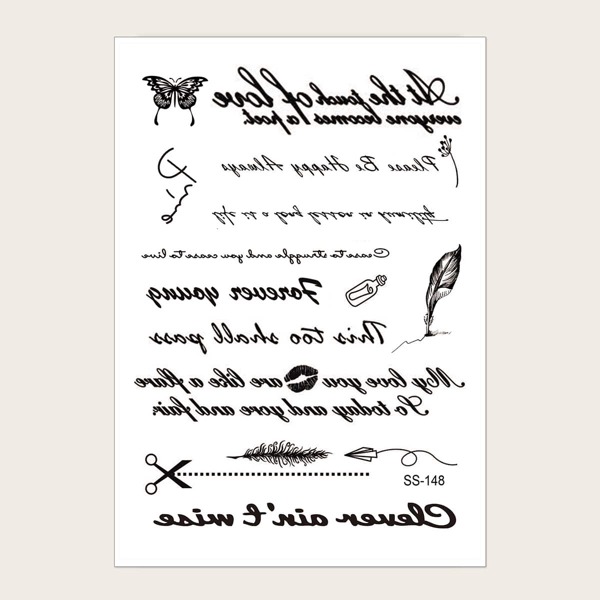 At the touch of love
everyone becomes a poet.
Please Be Happy Always
Cease to struggle and you cease to live
Forever young
This too shall pass
My love you are like a flare
So today and yore and fair
SS-148
Clever ain't wise